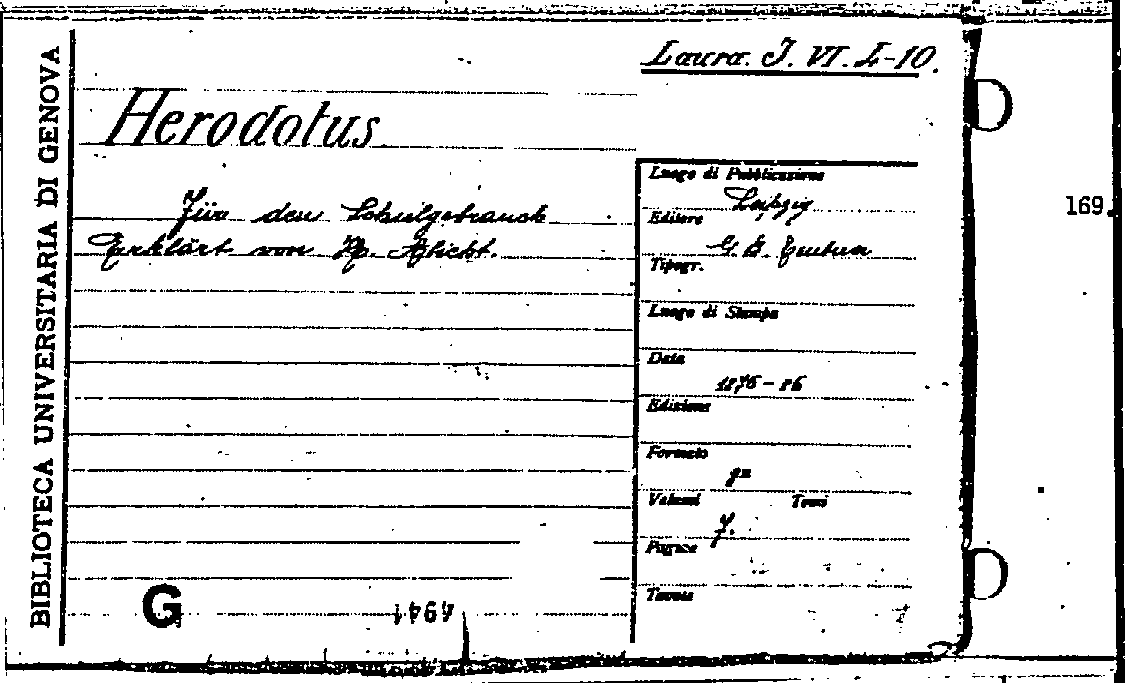 BIBLIOTECA UNIVERSITARIA DI GENOVA
Laura. J. VI. 4-10.
Herodotus
Für den Schulgebrauch
Erklärt von K. Abicht.
Luogo di Pubblicazione
Leipzig
Editore
G. B. Teubner
Tipogr.
Luogo di Stampa
Data
1876-86
Edizione
Formato
Volumi Tomi
Pagine
Tavole
G
4941
169.